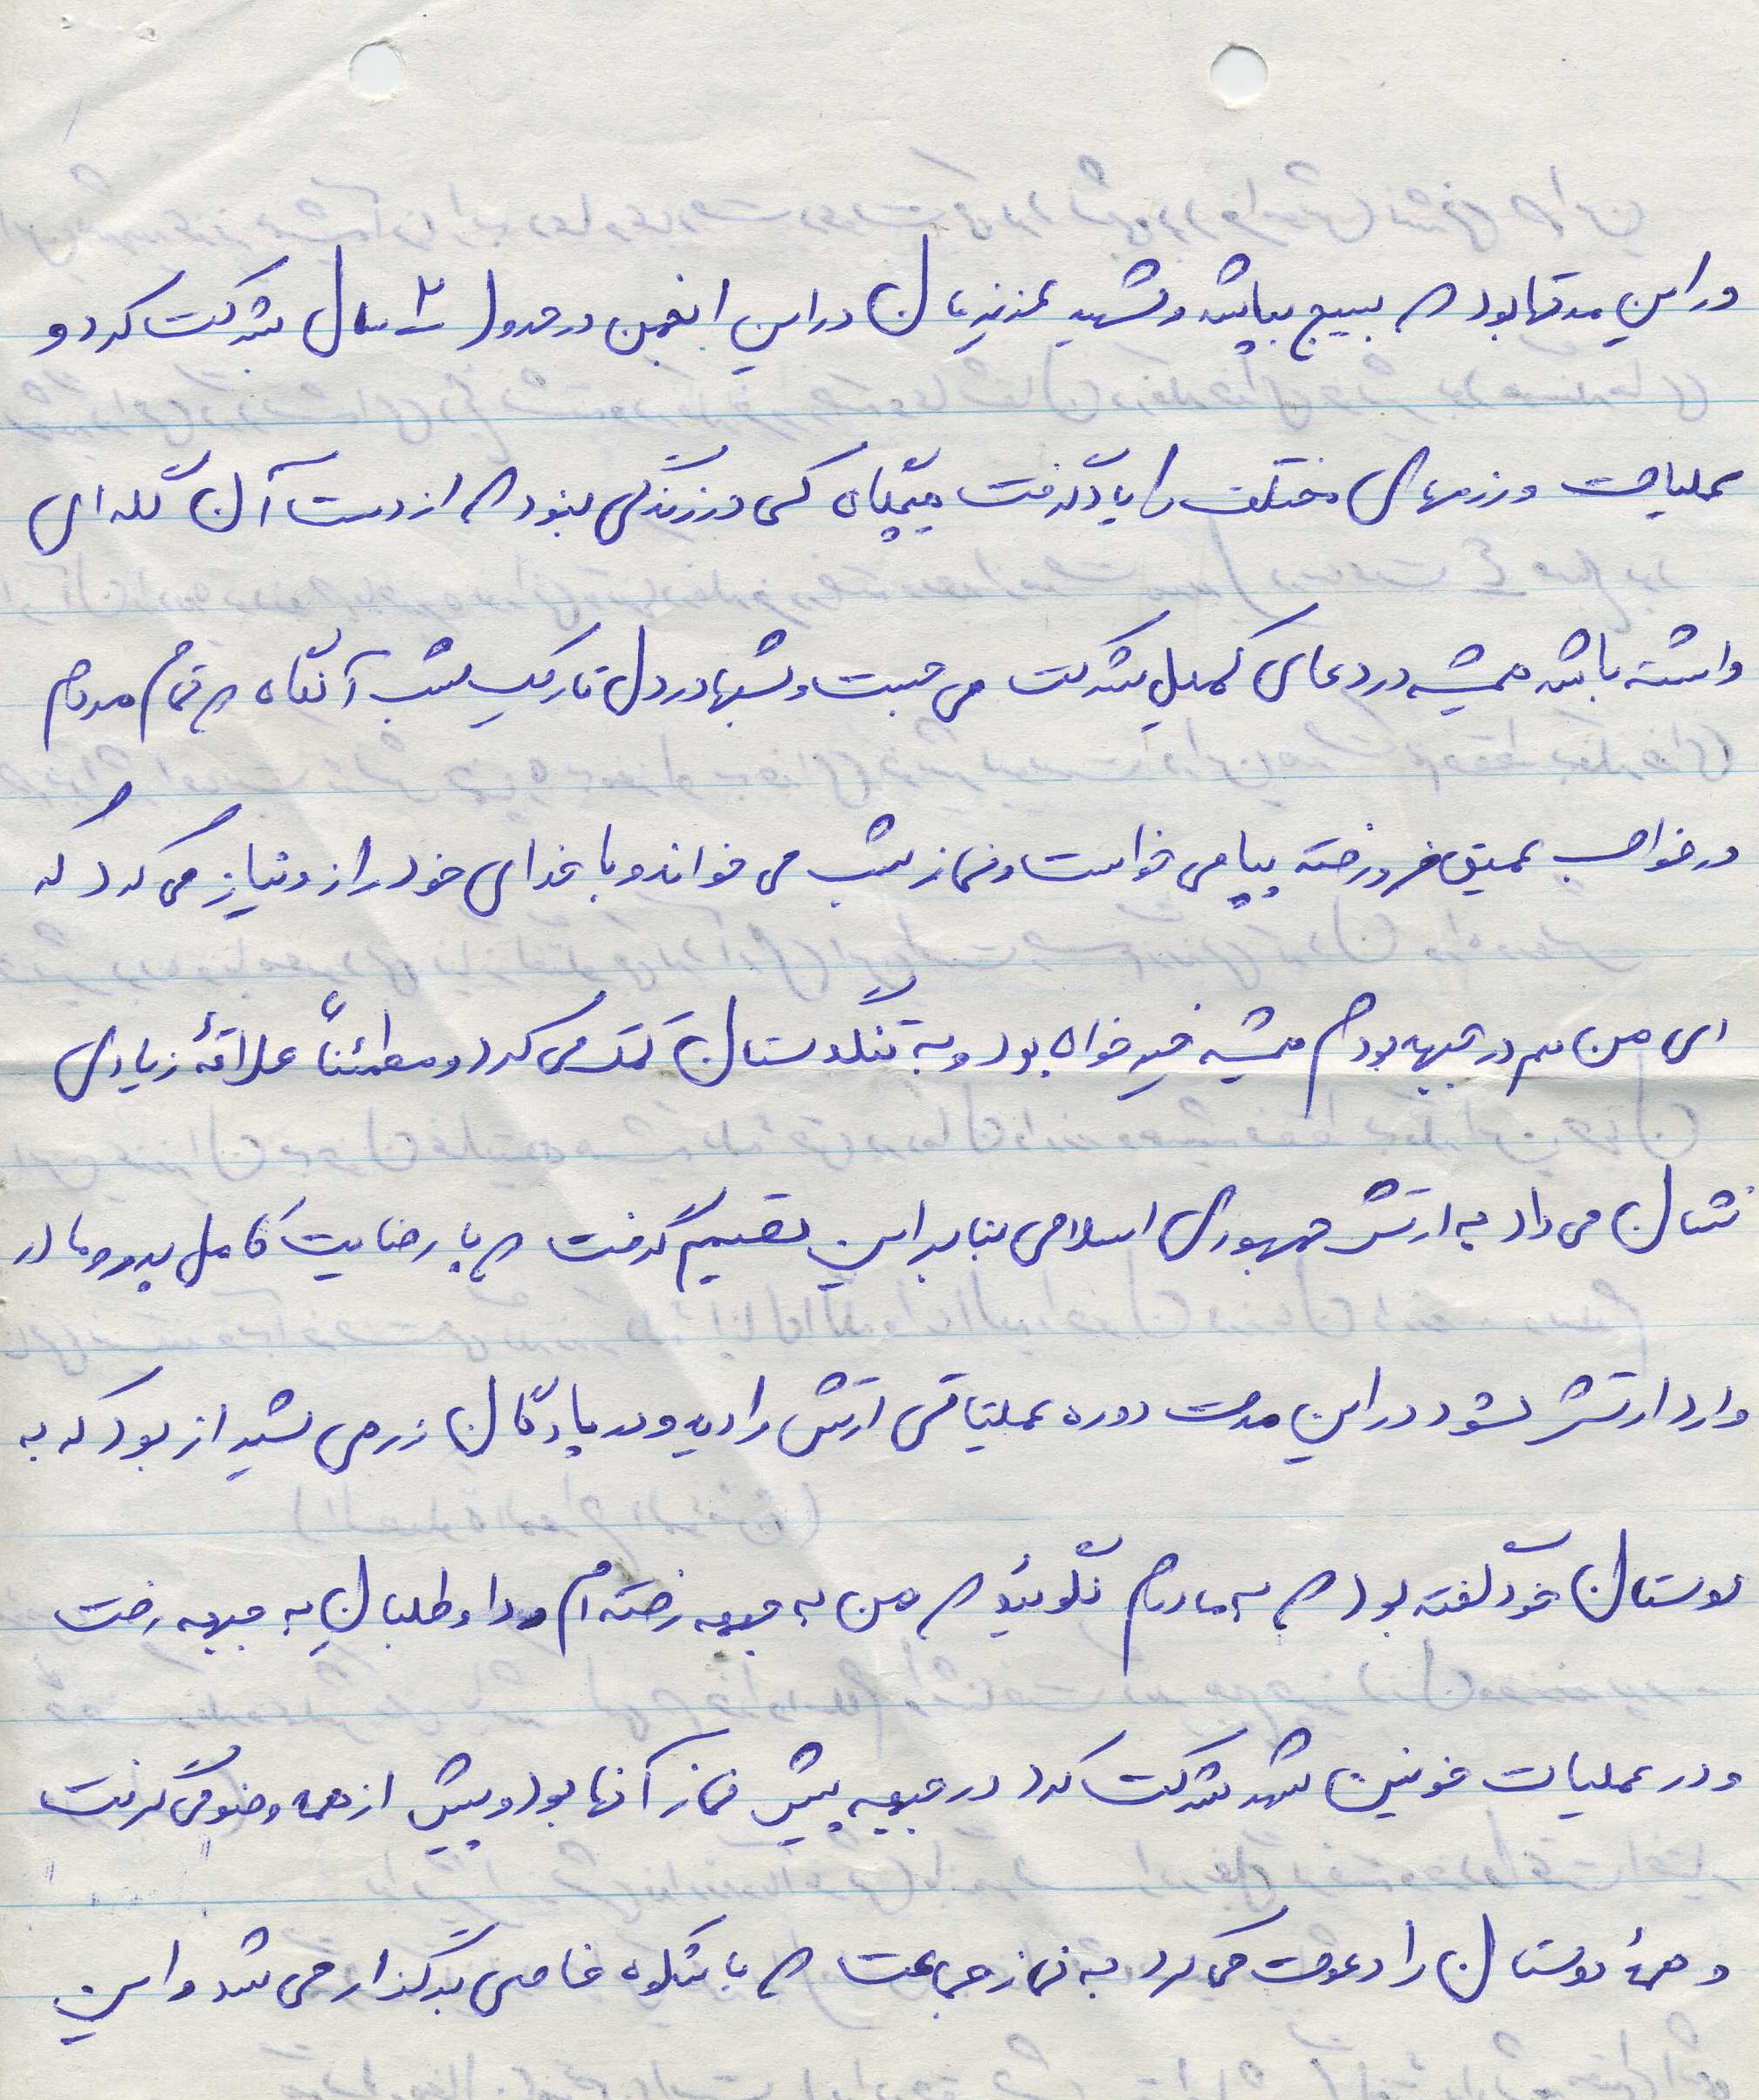 در این مدتها بود که بسیج بپاشد و شهید عزیزمان در این انجمن در حدود ۲ سال شرکت کرد و
عملیات و رزمهای مختلف را یاد گرفت هیچگاه کسی در زندگی نبود که از دست آن گله ای
داشته باشد همیشه در دعای کمیل شرکت می جست و شبها در دل تاریک شب آنگاه که تمام مردم
در خواب عمیق فرو رفته بپا می خواست و نماز شب می خواند و با خدای خود راز و نیاز می کرد که
ای من هم در جبهه بودم همیشه خیر خواه بود و به تنگدستان کمک می کرد و مطمئناً علاقهٔ زیادی
نشان می داد به ارتش جمهوری اسلامی بنابراین تصمیم گرفت که با رضایت کامل پدر و مادر
وارد ارتش شود در این مدت دوره عملیاتی ارتش را دید و در پادگان زرهی شیراز بود که به
دوستان خود گفته بود که به مادرم نگوئید که من به جبهه رفته ام و داوطلبان به جبهه رفت
و در عملیات خونین شهر شرکت کرد در جبهه پیش نماز آنها بود و پیش از همه وضو می گرفت
و همهٔ دوستان را دعوت می کرد به نماز جماعت که با شکوه خاصی برگذار می شد و این